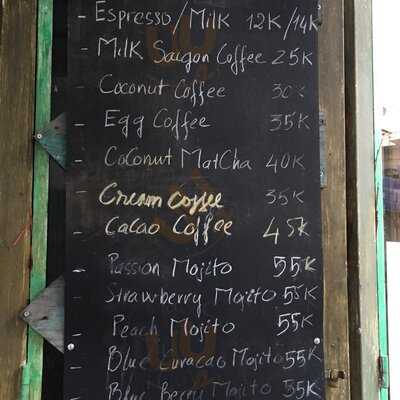 - Espresso/Milk 12K/14K
- Milk Saigon Coffee 25K
- Coconut Coffee 30K
- Egg Coffee 35K
- Coconut MatCha 40K
- Cream Coffee 35K
- Cacao Coffee 45K
- Passion Mojito 55K
- Strawberry Mojito 55K
- Peach Mojito 55K
- Blue Curacao Mojito 55K
- Blue Berry Mojito 55K